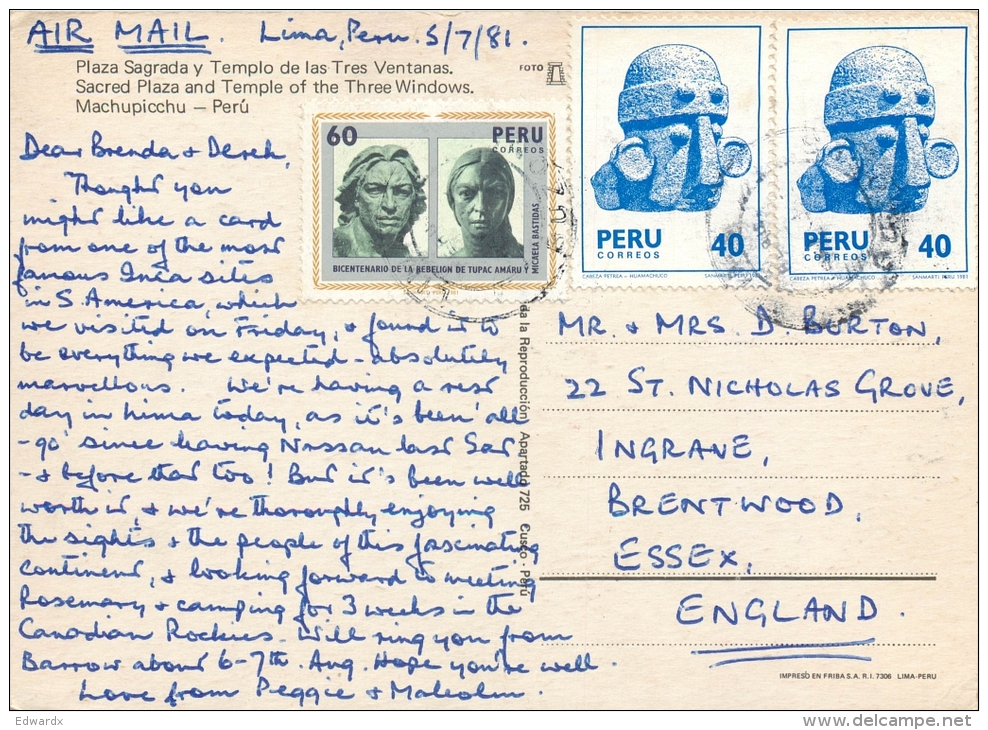 AIR MAIL. Lima, Peru. 5/7/81.
Plaza Sagrada y Templo de las Tres Ventanas.
Sacred Plaza and Temple of the Three Windows.
Machupicchu — Perú
FOTO
60 PERU
CORREOS
MICAELA BASTIDAS
BICENTENARIO DE LA REBELION DE TUPAC AMARU Y
PERU 40
CORREOS
CABEZA PETREA - HUAMACHUCO SANMARTI PERU 1981
PERU 40
CORREOS
CABEZA PETREA - HUAMACHUCO SANMARTI PERU 1981
Dear Brenda & Derek,
Thought you
might like a card
from one of the most
famous Inca sites
in S. America, which
we visited on Friday, & found it to
be everything we expected - absolutely
marvellous. We're having a rest
day in Lima today, as it's been 'all
-go' since leaving Nassau last Sat
- & before that too! But it's been well
worth it, & we're thoroughly enjoying
the sights & the people of this fascinating
continent, & looking forward to meeting
Rosemary & camping for 3 weeks in the
Canadian Rockies. Will ring you from
Barrow about 6-7th. Aug. Hope you're well.
Love from Peggie & Malcolm.
da la Reproducción Apartado 725 Cusco - Perú
MR. & MRS. D. BURTON,
22 ST. NICHOLAS GROVE,
INGRAVE,
BRENTWOOD,
ESSEX,
ENGLAND.
IMPRESO EN FRIBA S.A. R.I. 7306 LIMA-PERU
Edwardx
delcampe.net